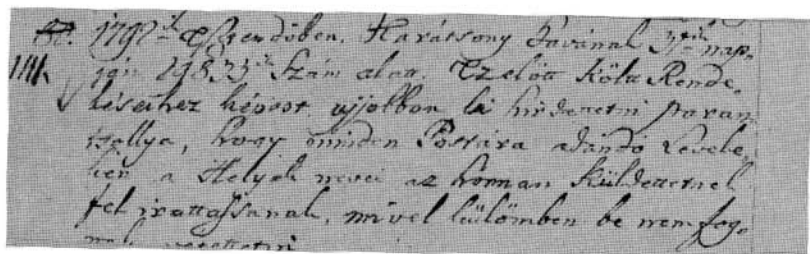 1792ik Esztendőben, Karátsony Havának 3dik nap-
ján 29835ik Szám alatt, Ezelőtt költ Rende-
léséhez képest ujjobban ki hirdettetni paran-
tsollya, hogy minden Postára adandó Levele-
ken a Helyek nevei az honnan küldettetnek
fel irattassanak, mivel külömben be nem fog-